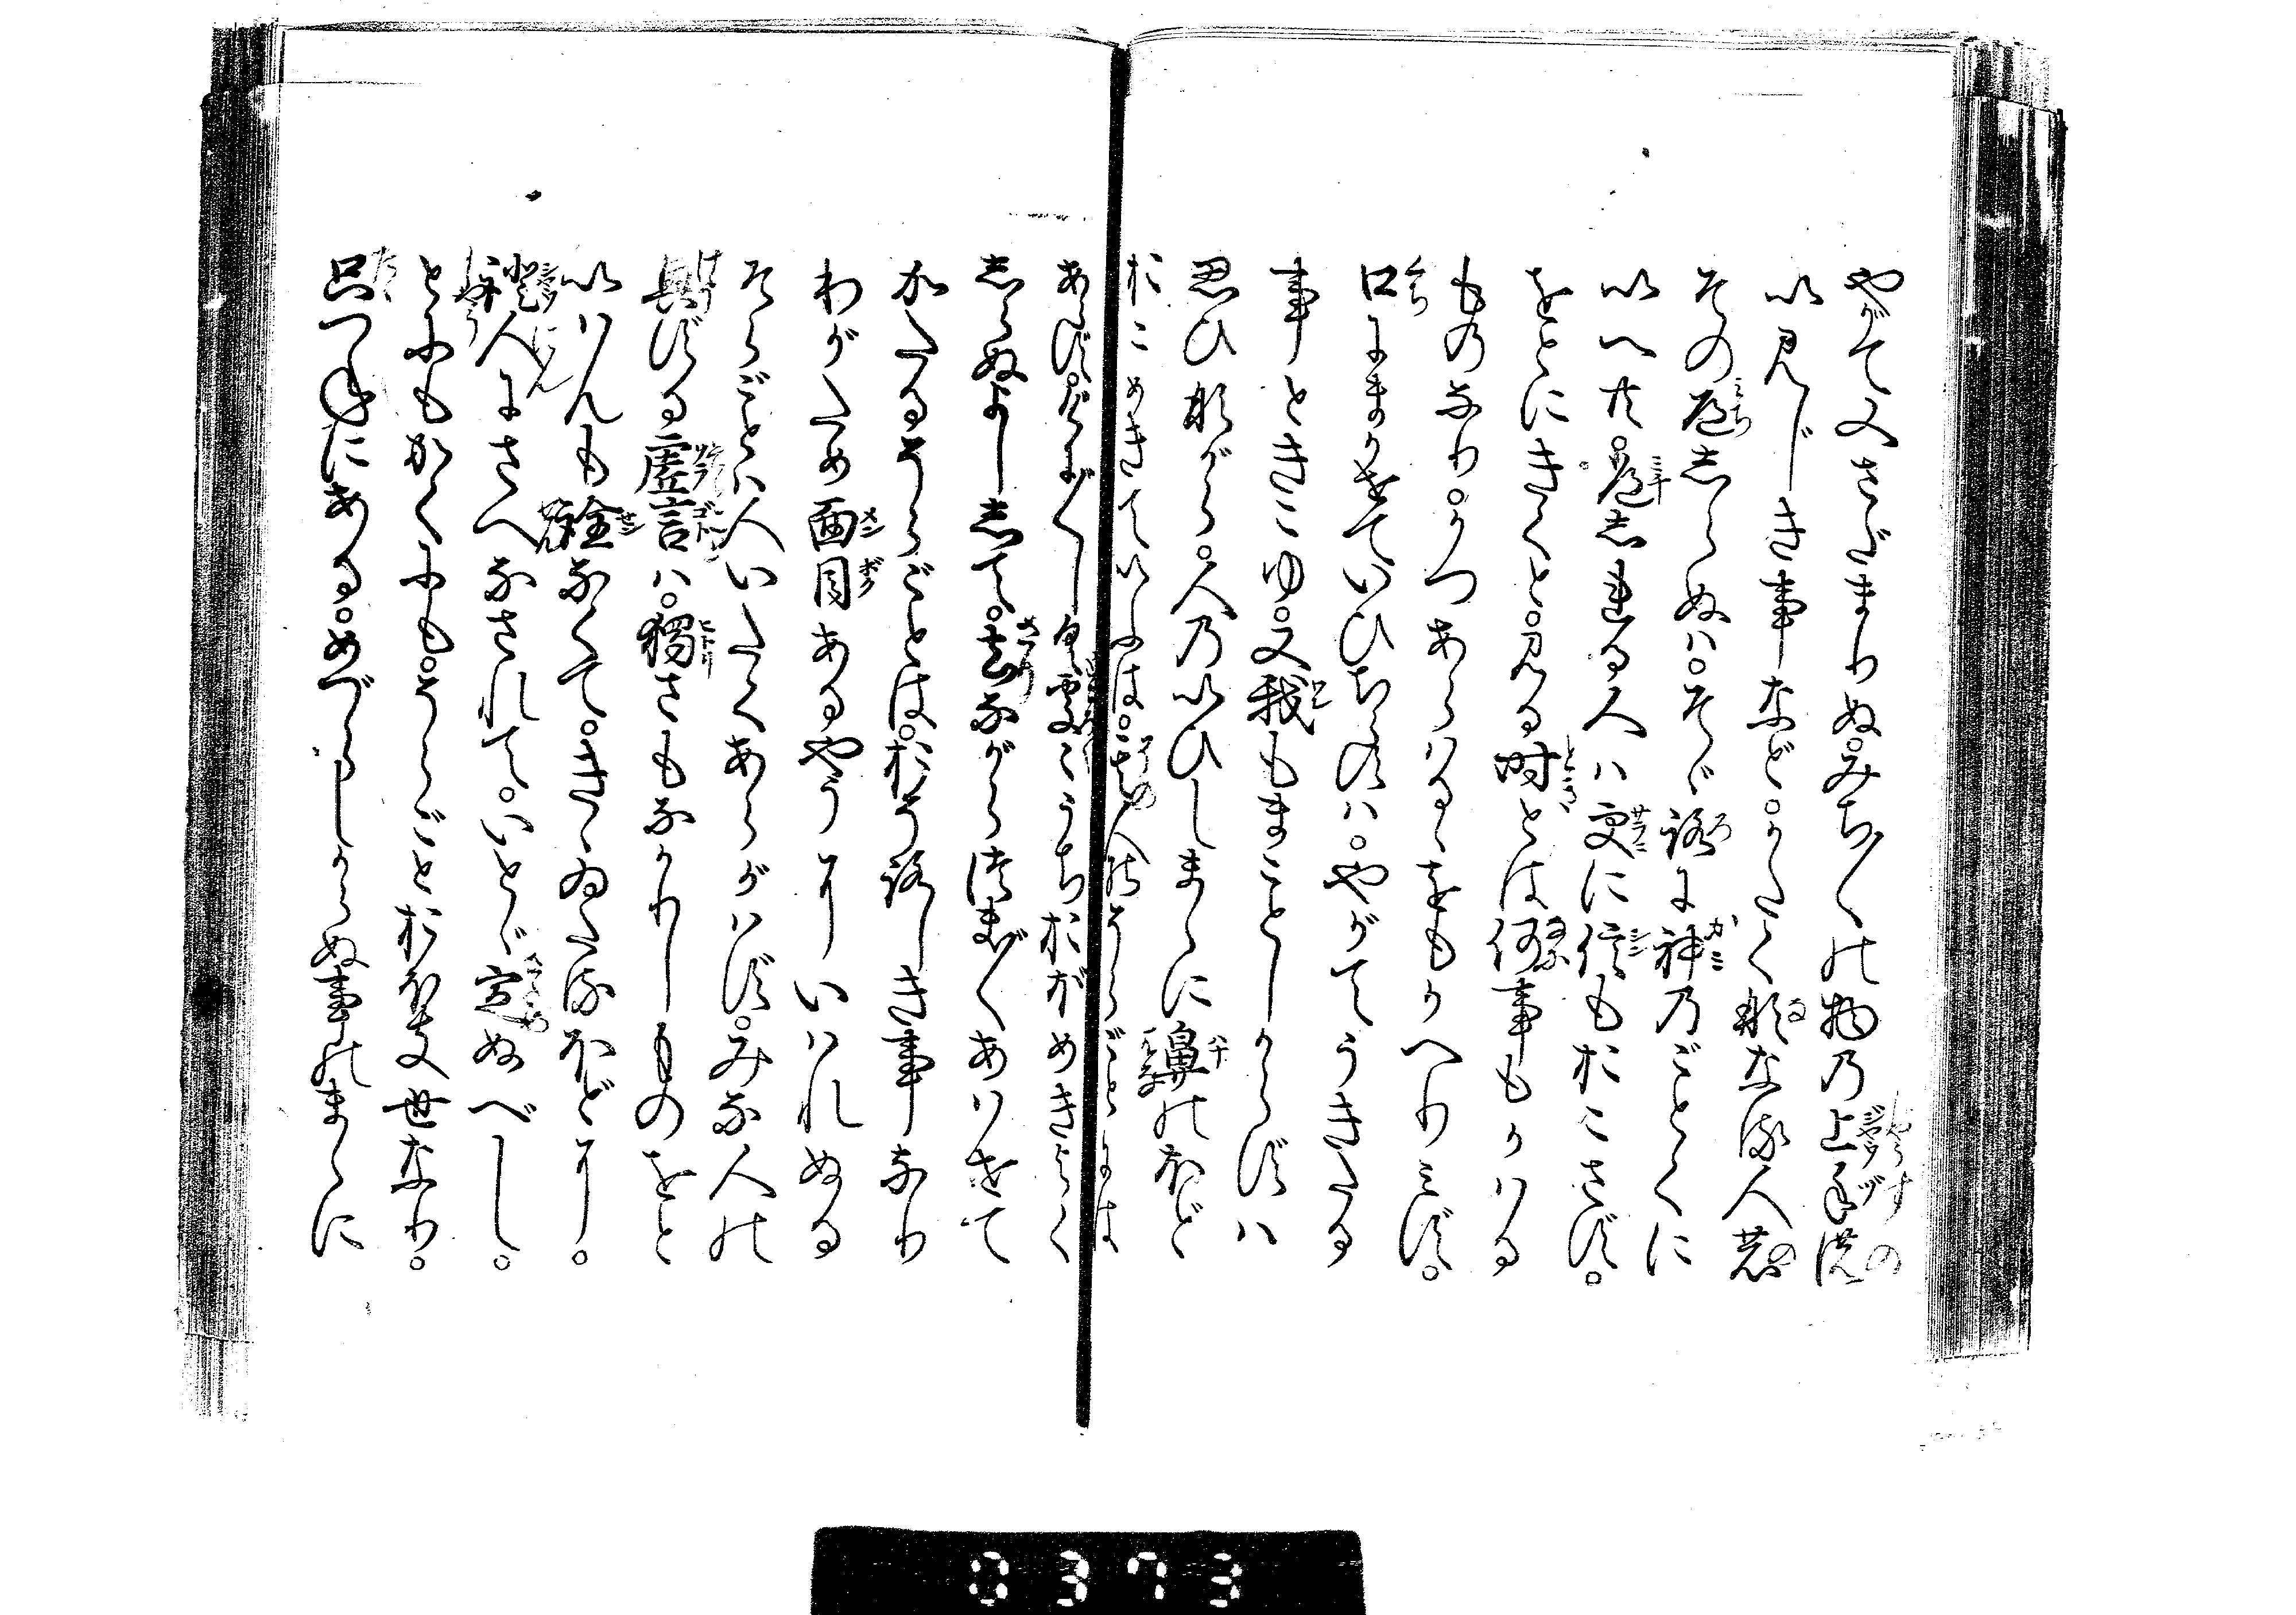 やがて又さだまりぬ。みち〳〵の物の上手の
いみじき事など。かたくななる人の
その道しらぬは。そゞろに神のごとくに
いへ共。道しれる人は更に信もおこさず。
をとにきくと。見る時とは何事もかはる
もの也。かつあらはるゝをもかへりみず。
口にまかせていひちらすは。やがてうきたる
事ときこゆ。又我もまことしからずは
思ひながら。人のいひしまゝに鼻のほど
おこめきていふは。其人のそらごとには
あらず。げに〳〵しく所々うちおぼめきよく
しらぬよしして。去ながらつま〴〵あはせて
かたるそらごとは。おそろしき事なり
わがため面目あるやうにいはれぬる
そらごとは人いたくあらがはず。みな人の
興ずる虚言は。独さもなかりしものをと
いはんも詮なくて。きゝゐたるほどに。
證人にさへなされて。いとゞ定ぬべし。
とにもかくにも。そらごとおほき世なり。
只つねにある。めづらしからぬ事のまゝに
0373